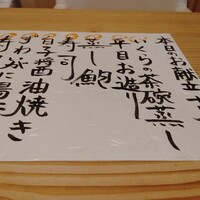 本日のお献立
いくらの茶碗蒸し
平目お造り
蒸し鮑
寿司
白子醤油焼き
ずわがに湯